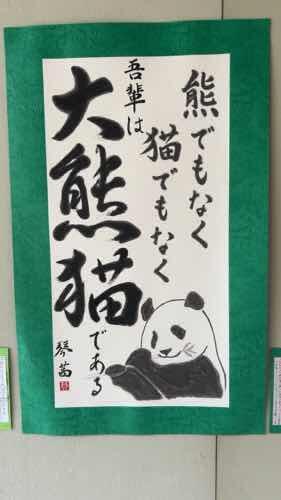 熊でもなく
猫でもなく
吾輩は
大熊猫である
琴茜